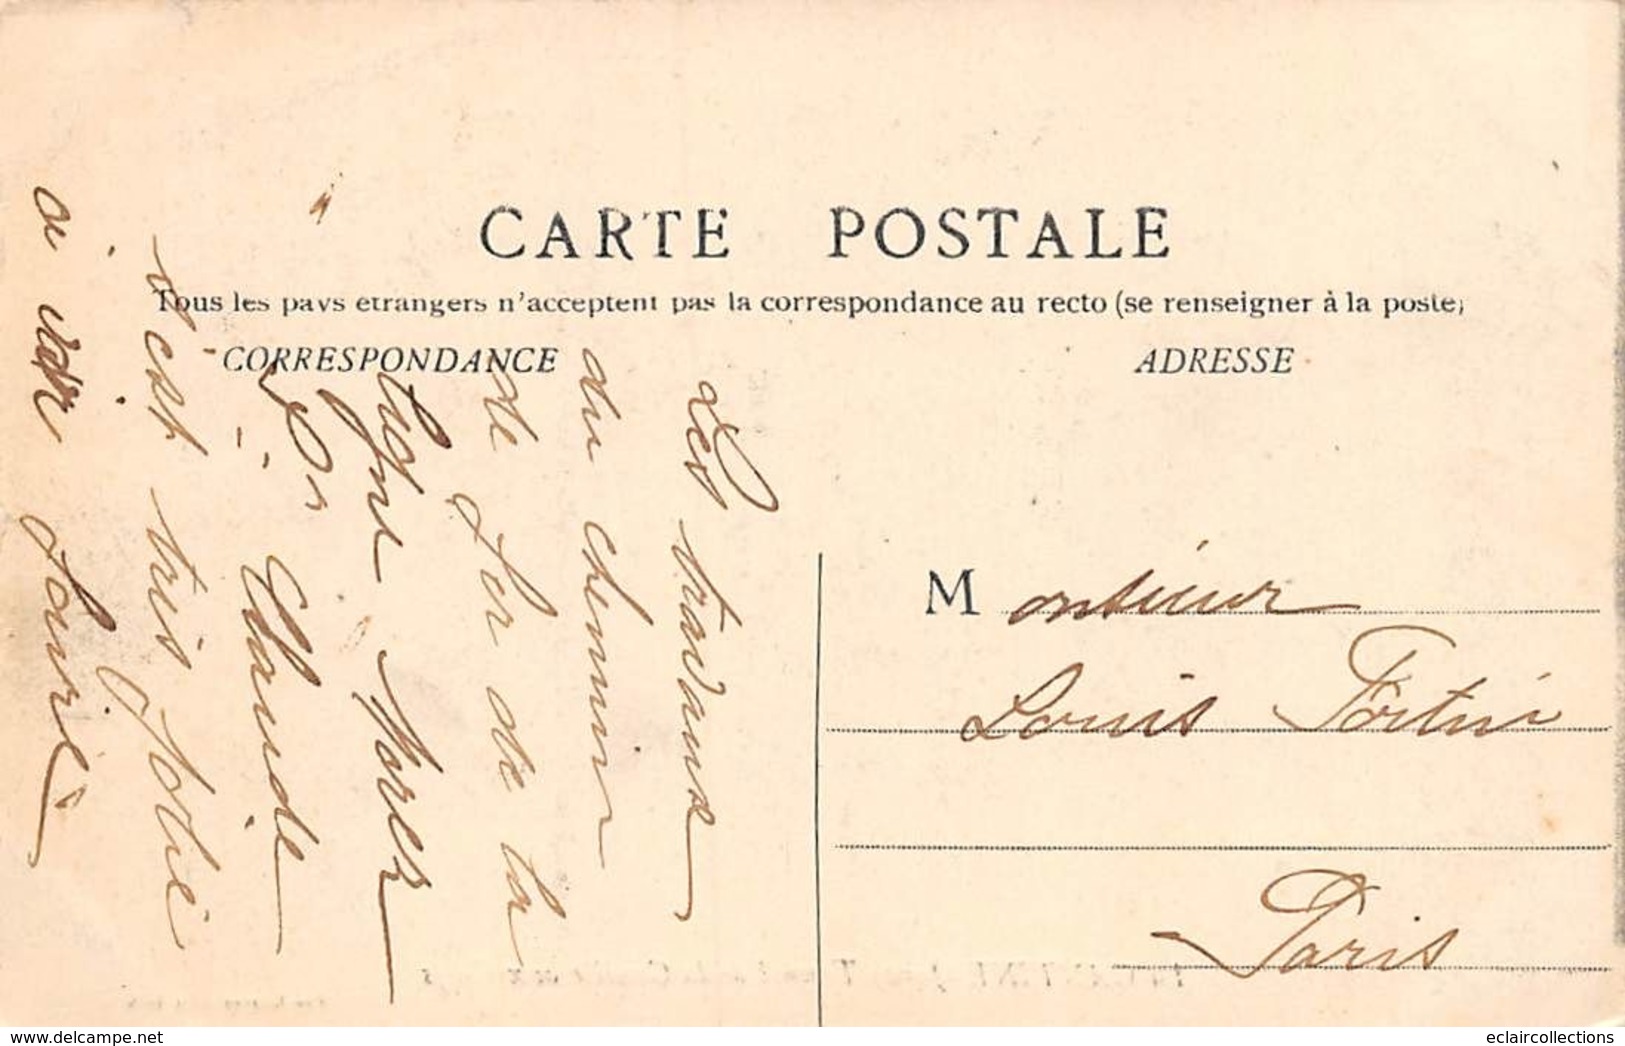 CARTE POSTALE
Tous les pays étrangers n'acceptent pas la correspondance au recto (se renseigner à la poste)
CORRESPONDANCE
ADRESSE
Les travaux
du chemin
de fer de la
ligne Morez
St Claude
c'est très joli
à voir
Monsieur
Louis Fortin
Paris
www.delcampe.net
eclaircollections